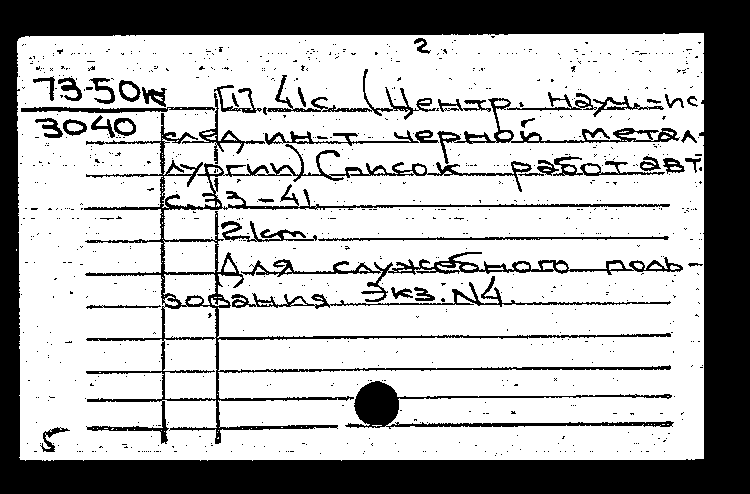 2
73-50к [1], 41с. (Центр. науч.-ис-
3040 след ин-т черной метал-
лургии) Список работ авт.
с. 33-41.
21cm.
Для служебного поль-
зования. Экз. N4.
5